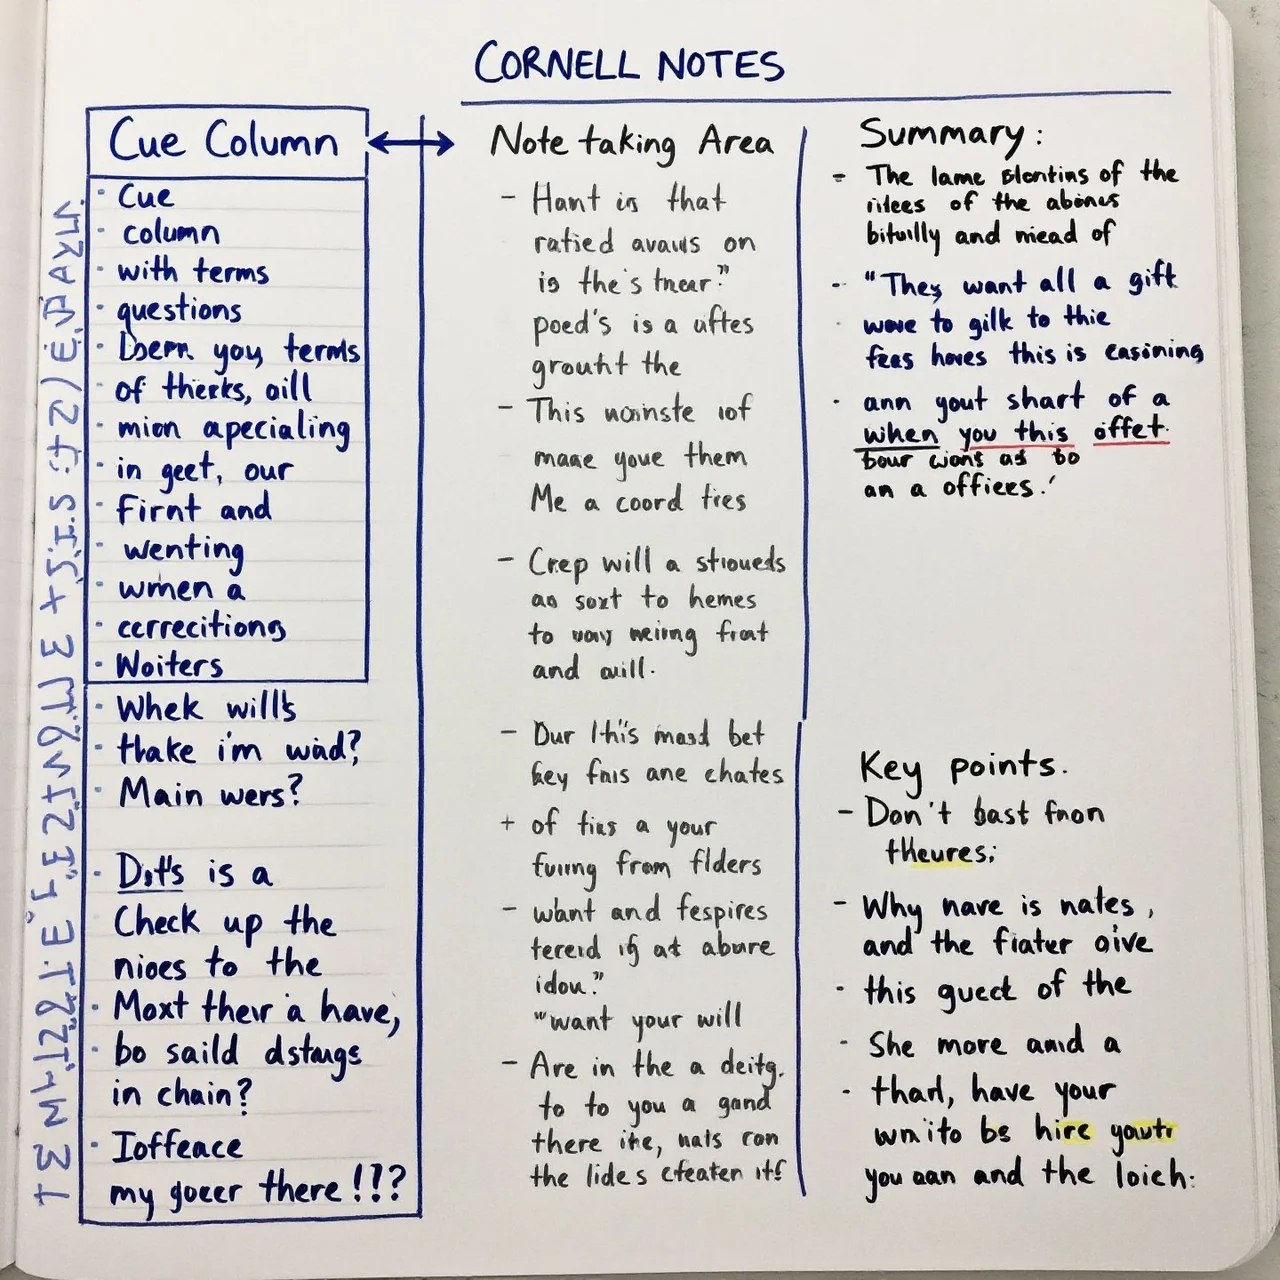 CORNELL NOTES
Cue Column
· Cue
· column
· with terms
· questions
· you, terms
· of therks, aill
· mion apecialing
· in geet, our
· Firnt and
· wenting
· wmen a
· ccrrecitiong
· Woiters
· Whek wills
· thake i'm wad?
· Main wers?
· Ditts is a
Check up the
nioes to the
· Moxt their a have,
· bo saild dstaugs
in chain?
· Ioffeace
my gocer there!!?
Note taking Area
- Hant is that
ratied avaus on
is the's tnear."
poed's is a uftes
grount the
- This noinste iof
maae youe them
Me a coord ties
- Crep will a stioueds
as soxt to hemes
to uay neiing froat
and auill.
- Dur this masd bet
key fnis ane chates
+ of tius a your
fuing from flders
- want and fespires
tereid if at abure
idou."
"want your will
- Are in the a deitg.
to to you a gand
there ite, nats con
the lides cfeaten itf
Summary:
- The lame Blontins of the
iitees of the abones
bituilly and miead of
- "They want all a gift
· wove to gilk to thie
feas hoves this is easining
· ann yout shart of a
when you this offet.
bour wons as bo
an a offices.'
Key points.
- Don't bast fnon
theures;
- Why nave is nates,
and the fiater oive
· this guect of the
· She more and a
· tharl, have your
wnito be hire youtr
you aan and the loich: